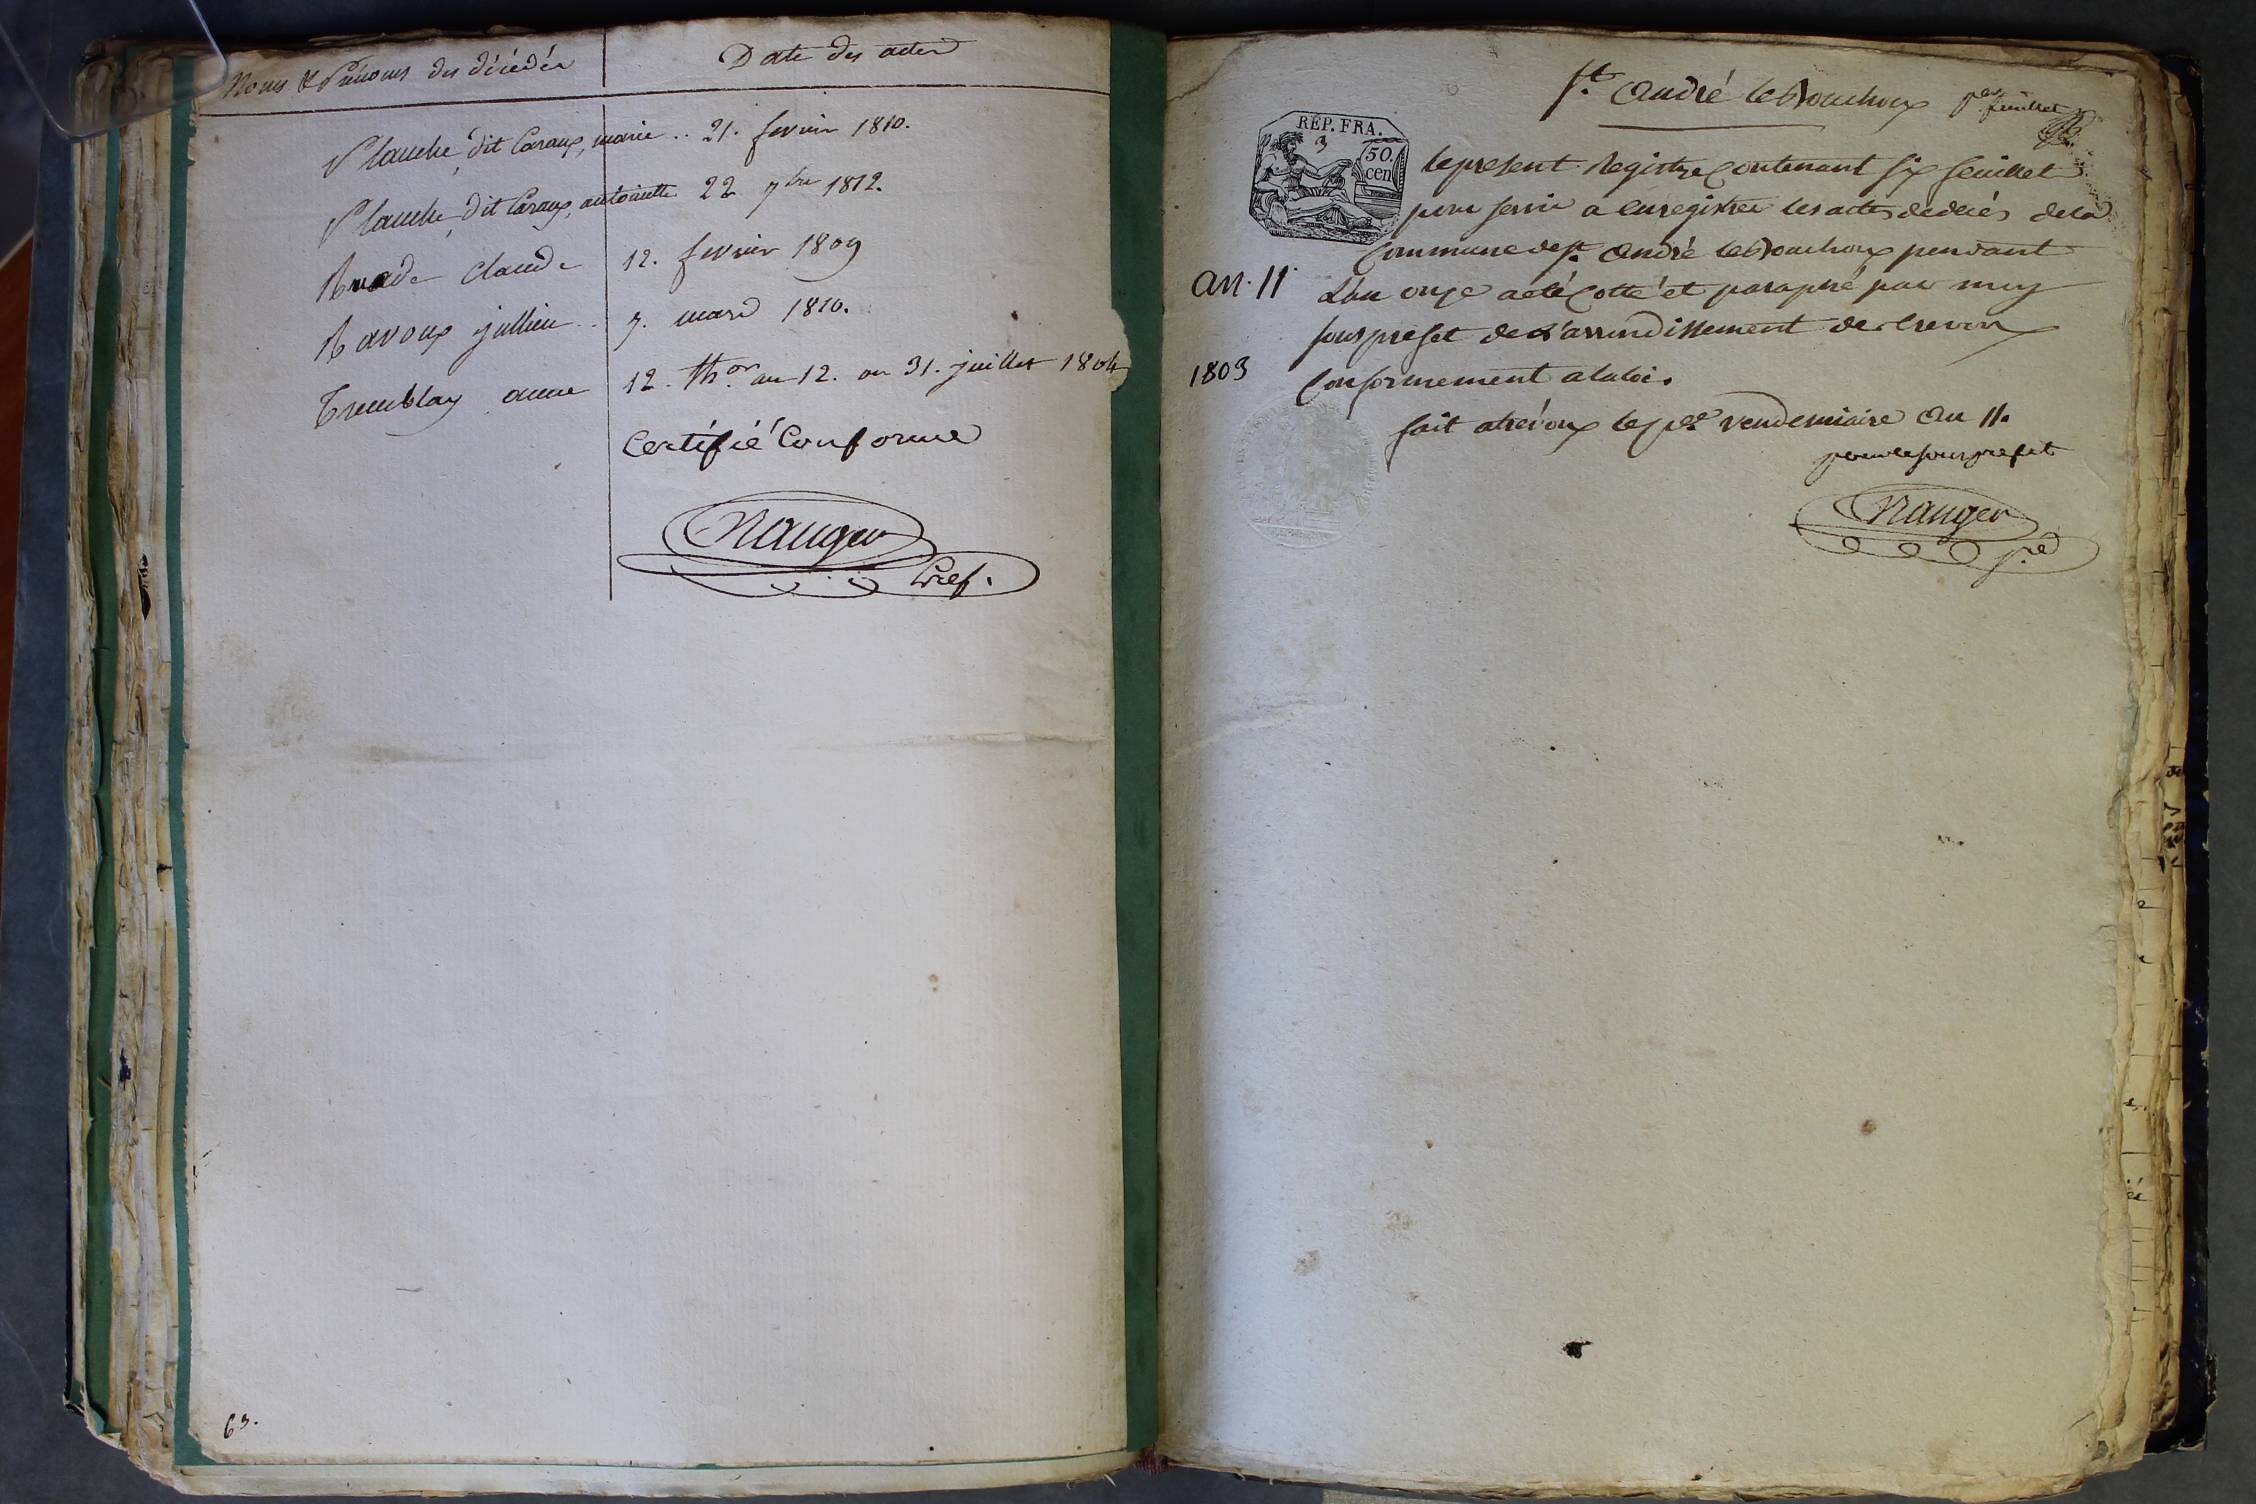 Noms & Prénoms des décédés | Date des actes
Planche, dit Caraux, marie .. 21. fevrier 1810.
Planche, dit Caraux, antoinette 22 7bre 1812.
Claude 12. fevrier 1809
Ravoux jullien .. 7. mars 1810.
Tremblay anne 12. Thor. an 12. ou 31. juillet 1804
Certifié Conforme
Nauger
Gref.
63.
St. André le Bouchoux per. feuillet
RÉP. FRA.
3
50.
cen
le present Registre Contenant six feuillet
pour servir a enregistrer les actes de décès de la
Commune de St. André le Bouchoux pendant
an. 11
L'an onze a eté Cotté et paraphé par moy
sous prefet de L'arrondissement de trevoux
1803
Conformement a la loi.
fait a trévoux le per. vendemiaire an 11.
pour le sous prefet
Nauger